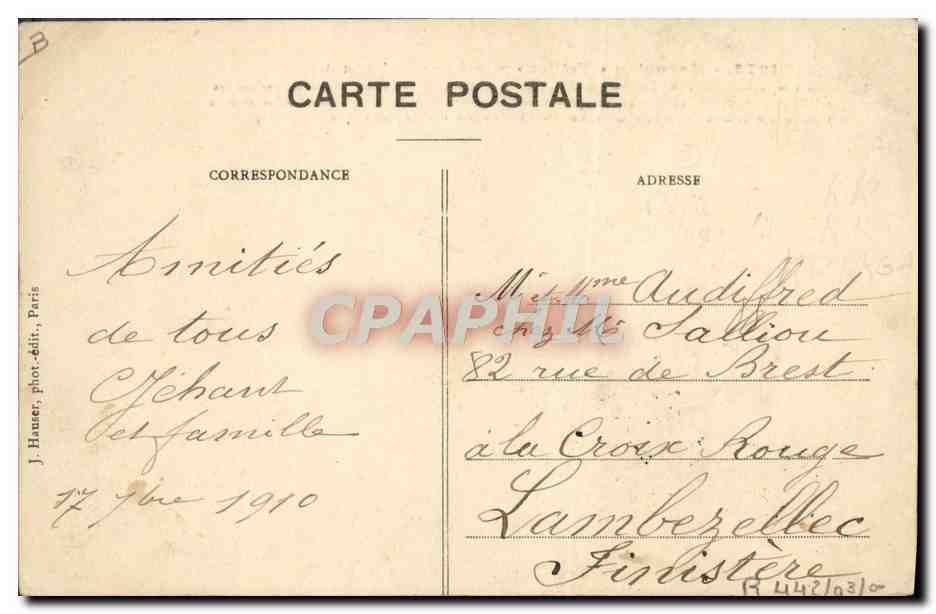 B
CARTE POSTALE
CORRESPONDANCE
Amitiés
de tous
Jéhant
et famille
17 7bre 1910
J. Hauser, phot.-édit., Paris
ADRESSE
Mr et Mme Audiffred
chez Mr Salliou
82 rue de Brest
à la Croix Rouge
Lambezellec
Finistère
CPAPHIL